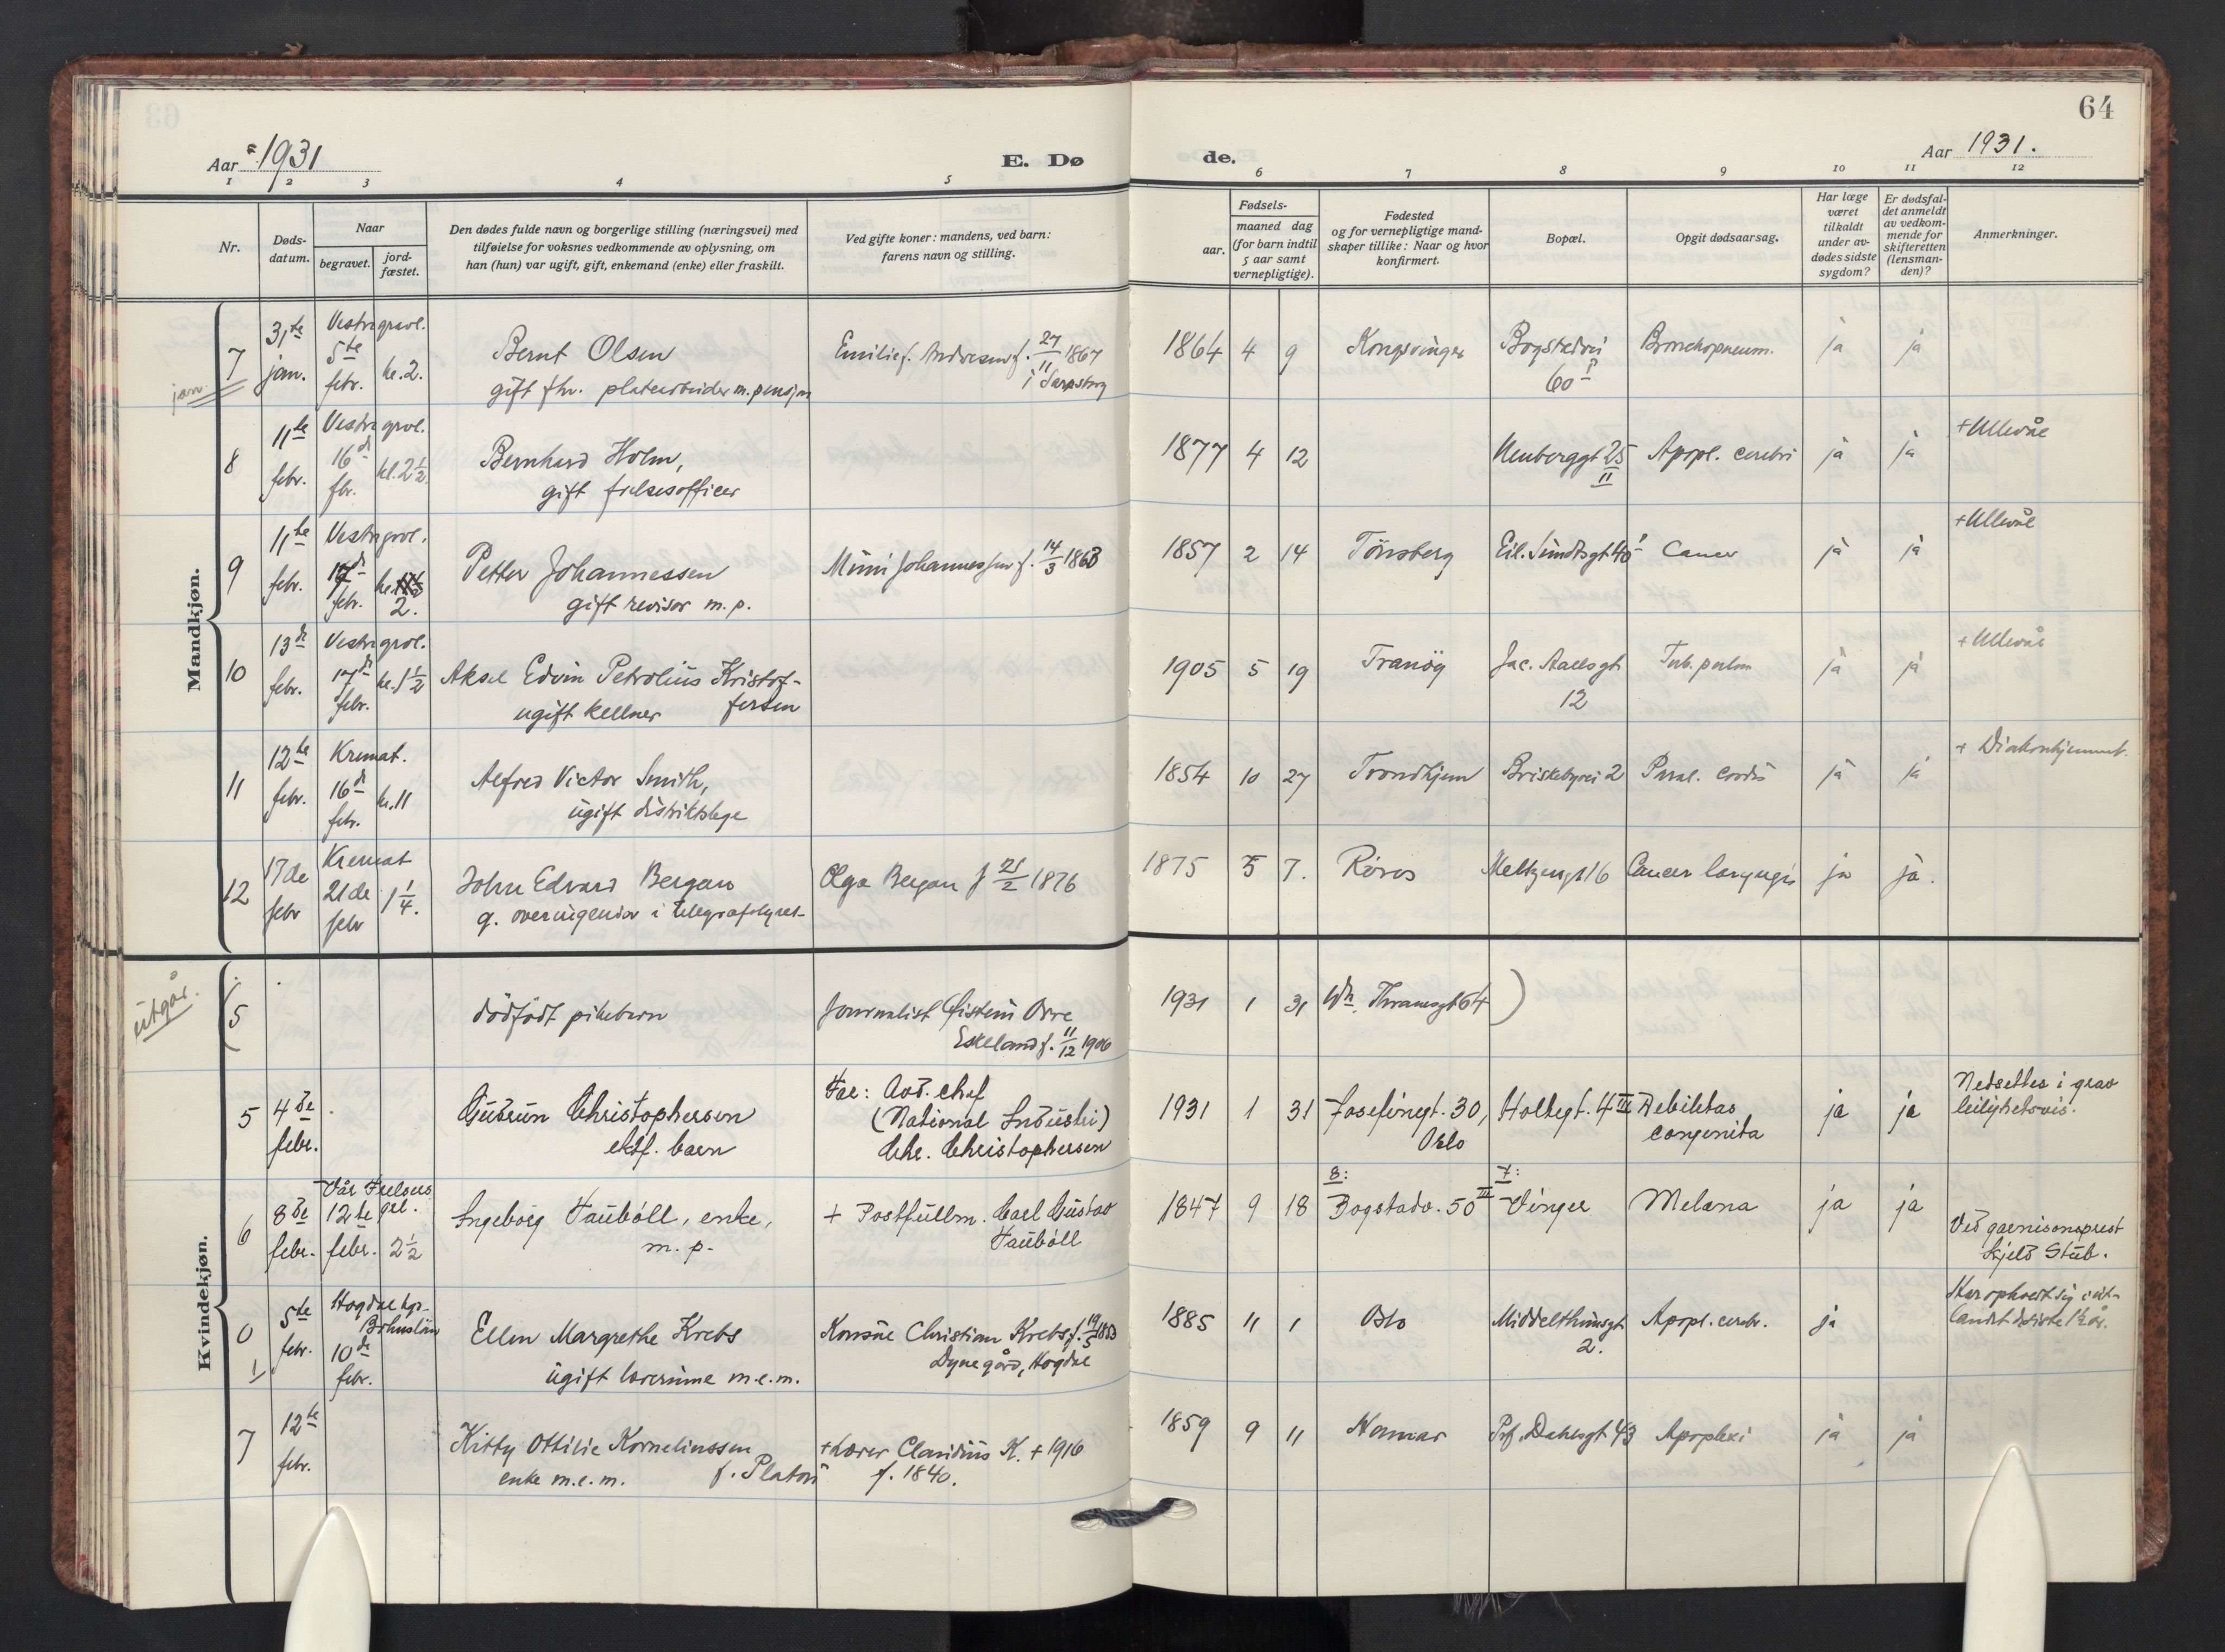 64
Aar 1931
E. Dø
de.
Aar 1931.
1 2 3 4 5 6 7 8 9 10 11 12
Nr.
Døds-
datum.
Naar
begravet.
jord-
fæstet.
Den dødes fulde navn og borgerlige stilling (næringsvei) med
tilføielse for voksnes vedkommende av oplysning, om
han (hun) var ugift, gift, enkemand (enke) eller fraskilt.
Ved gifte koner: mandens, ved barn:
farens navn og stilling.
Fødsels-
aar.
maaned dag
(for barn indtil
5 aar samt
vernepligtige).
Fødested
og for vernepligtige mand-
skaper tillike: Naar og hvor
konfirmert.
Bopæl.
Opgit dødsaarsag.
Har læge
været
tilkaldt
under av-
dødes sidste
sygdom?
Er dødsfal-
det anmeldt
av vedkom-
mende for
skifteretten
(lensman-
den)?
Anmerkninger.
Mandkjøn.
jan.
7
31te
jan.
Vestre gravl.
5te
febr.
kl. 2.
Bernt Olsen
gift fhv. platearbeider m. pensjon
Emilie f. Andresen f. 27/11 1867
i Sarpsborg
1864 4 9
Kongsvinger
Bogstadvei
60
Bronchopneum.
ja
ja
8
11te
febr.
Vestre grvl.
16de
fbr.
kl. 2 1/2
Bernhard Holm,
gift frelsesofficer
1877 4 12
Neuberggt 25
II
Apopl. cerebri
ja
ja
+ Ullevål
9
11te
febr.
Vestre grvl.
17de
febr.
kl.
2.
Petter Johannessen
gift revisor m. p.
Mimi Johannessen f. 14/3 1863
1857 2 14
Tönsberg
Eil. Sundtsgt 40
Cancer
ja
ja
+ Ullevål
10
13de
febr.
Vestre grvl.
17de
febr.
kl. 1 1/2
Aksel Edvin Petrolius Kristof-
fersen
ugift kellner
1905 5 19
Tranöy
Jac. Aallsgt
12
Tub. pulm
ja
ja
+ Ullevål
11
12te
febr.
Kremat.
16de
febr.
kl. 11
Alfred Victor Smith,
ugift distriktslege
1854 10 27
Trondhjem
Briskebyvei 2
Paral. cordis
ja
ja
+ Diakonhjemmet.
12
17de
febr
Kremat
21de
febr
1 1/4.
John Edvard Bergan
g. overingeniør i telegrafstyret
Olga Bergan f 21/2 1876
1875 5 7.
Røros
Meltzersgt 16
Cancer laryngis
ja
ja.
Kvindekjøn.
utgår.
(5
dödfödt pikebarn
Journalist Øistein Orre
Eskeland f. 11/12 1906
1931 1 31
Thranesgt 64 )
5
4de
febr.
Gudrun Christophersen
ektf. barn
Far: Avd. chef
(National Industri)
Chr. Christophersen
1931 1 31
Josefinegt. 30,
Oslo
Holtegt. 4 III
Debilitas
congenita
ja
ja
Nedsettes i grav
leilighetsvis.
6
8de
febr.
Vår Frelsers
grl.
12te
febr.
2 1/2
Ingeborg Taubøll, enke,
m. p.
+ Postfullm. Carl Gustav
Taubøll
1847 9 18
8:
Bogstadv. 50 III
7:
Vinger
Melæna
ja
ja
Ved garnisonsprest
Kjeld Stub.
0
1
5te
febr.
Hogdal kgr.
Bohuslän
10de
febr.
Ellen Margrethe Krebs
ugift lærerinne m.e.m.
Konsul Christian Krebs f.
Dynegård, Hogdal
1885 11 1
Oslo
Middelthunsgt
2.
Apopl. cerebr.
ja
Har opholdt sig i ut-
landet siste 1/2 år.
7
12te
febr.
Kitty Ottilie Korneliussen
enke m.e.m. f. Platou
+ Lærer Claudius K. + 1916
f. 1840.
1859 9 11
Hamar
Prf. Dahlsgt 43
Apoplexi
ja
ja